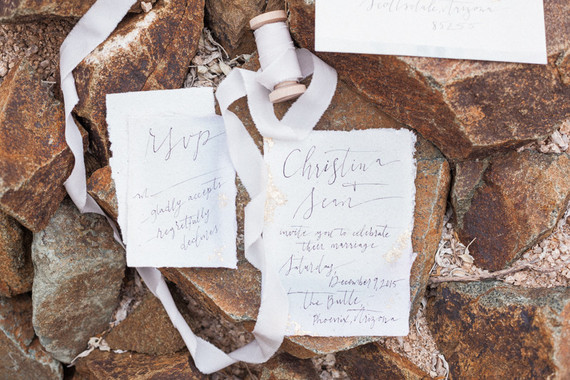 Scottsdale, Arizona
85255
rsvp
M
gladly accepts
regretfully
declines
Christina
Sean
invite you to celebrate
their marriage
Saturday,
December 9, 2015
The Butte,
Phoenix, Arizona